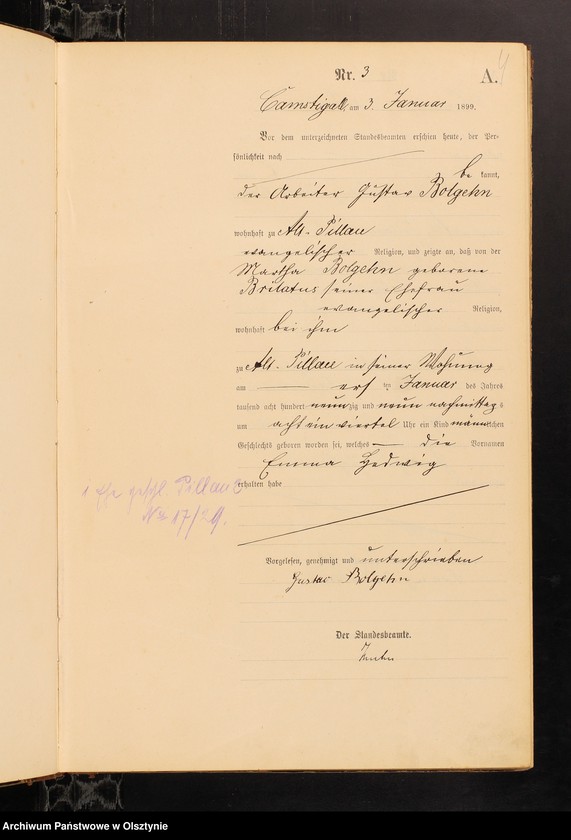 Nr. 3 A. 4
Camstigall, am 3. Januar 1899.
Vor dem unterzeichneten Standesbeamten erschien heute, der Per-
sönlichkeit nach
be kannt,
der Arbeiter Gustav Bolgehn
wohnhaft zu Alt-Pillau
evangelischer Religion, und zeigte an, daß von der
Martha Bolgehn geborene
Britatus seiner Ehefrau
evangelischer Religion,
wohnhaft bei ihm
zu Alt-Pillau in seiner Wohnung
am ersten Januar des Jahres
tausend acht hundert neunzig und neun nachmittags
um acht ein viertel Uhr ein Kind männlichen
Geschlechts geboren worden sei, welches die Vornamen
Emma Hedwig
erhalten habe
1 Ehe geschl. Pillau
Nr 17/29.
Vorgelesen, genehmigt und unterschrieben
Gustav Bolgehn
Der Standesbeamte.
Archiwum Państwowe w Olsztynie